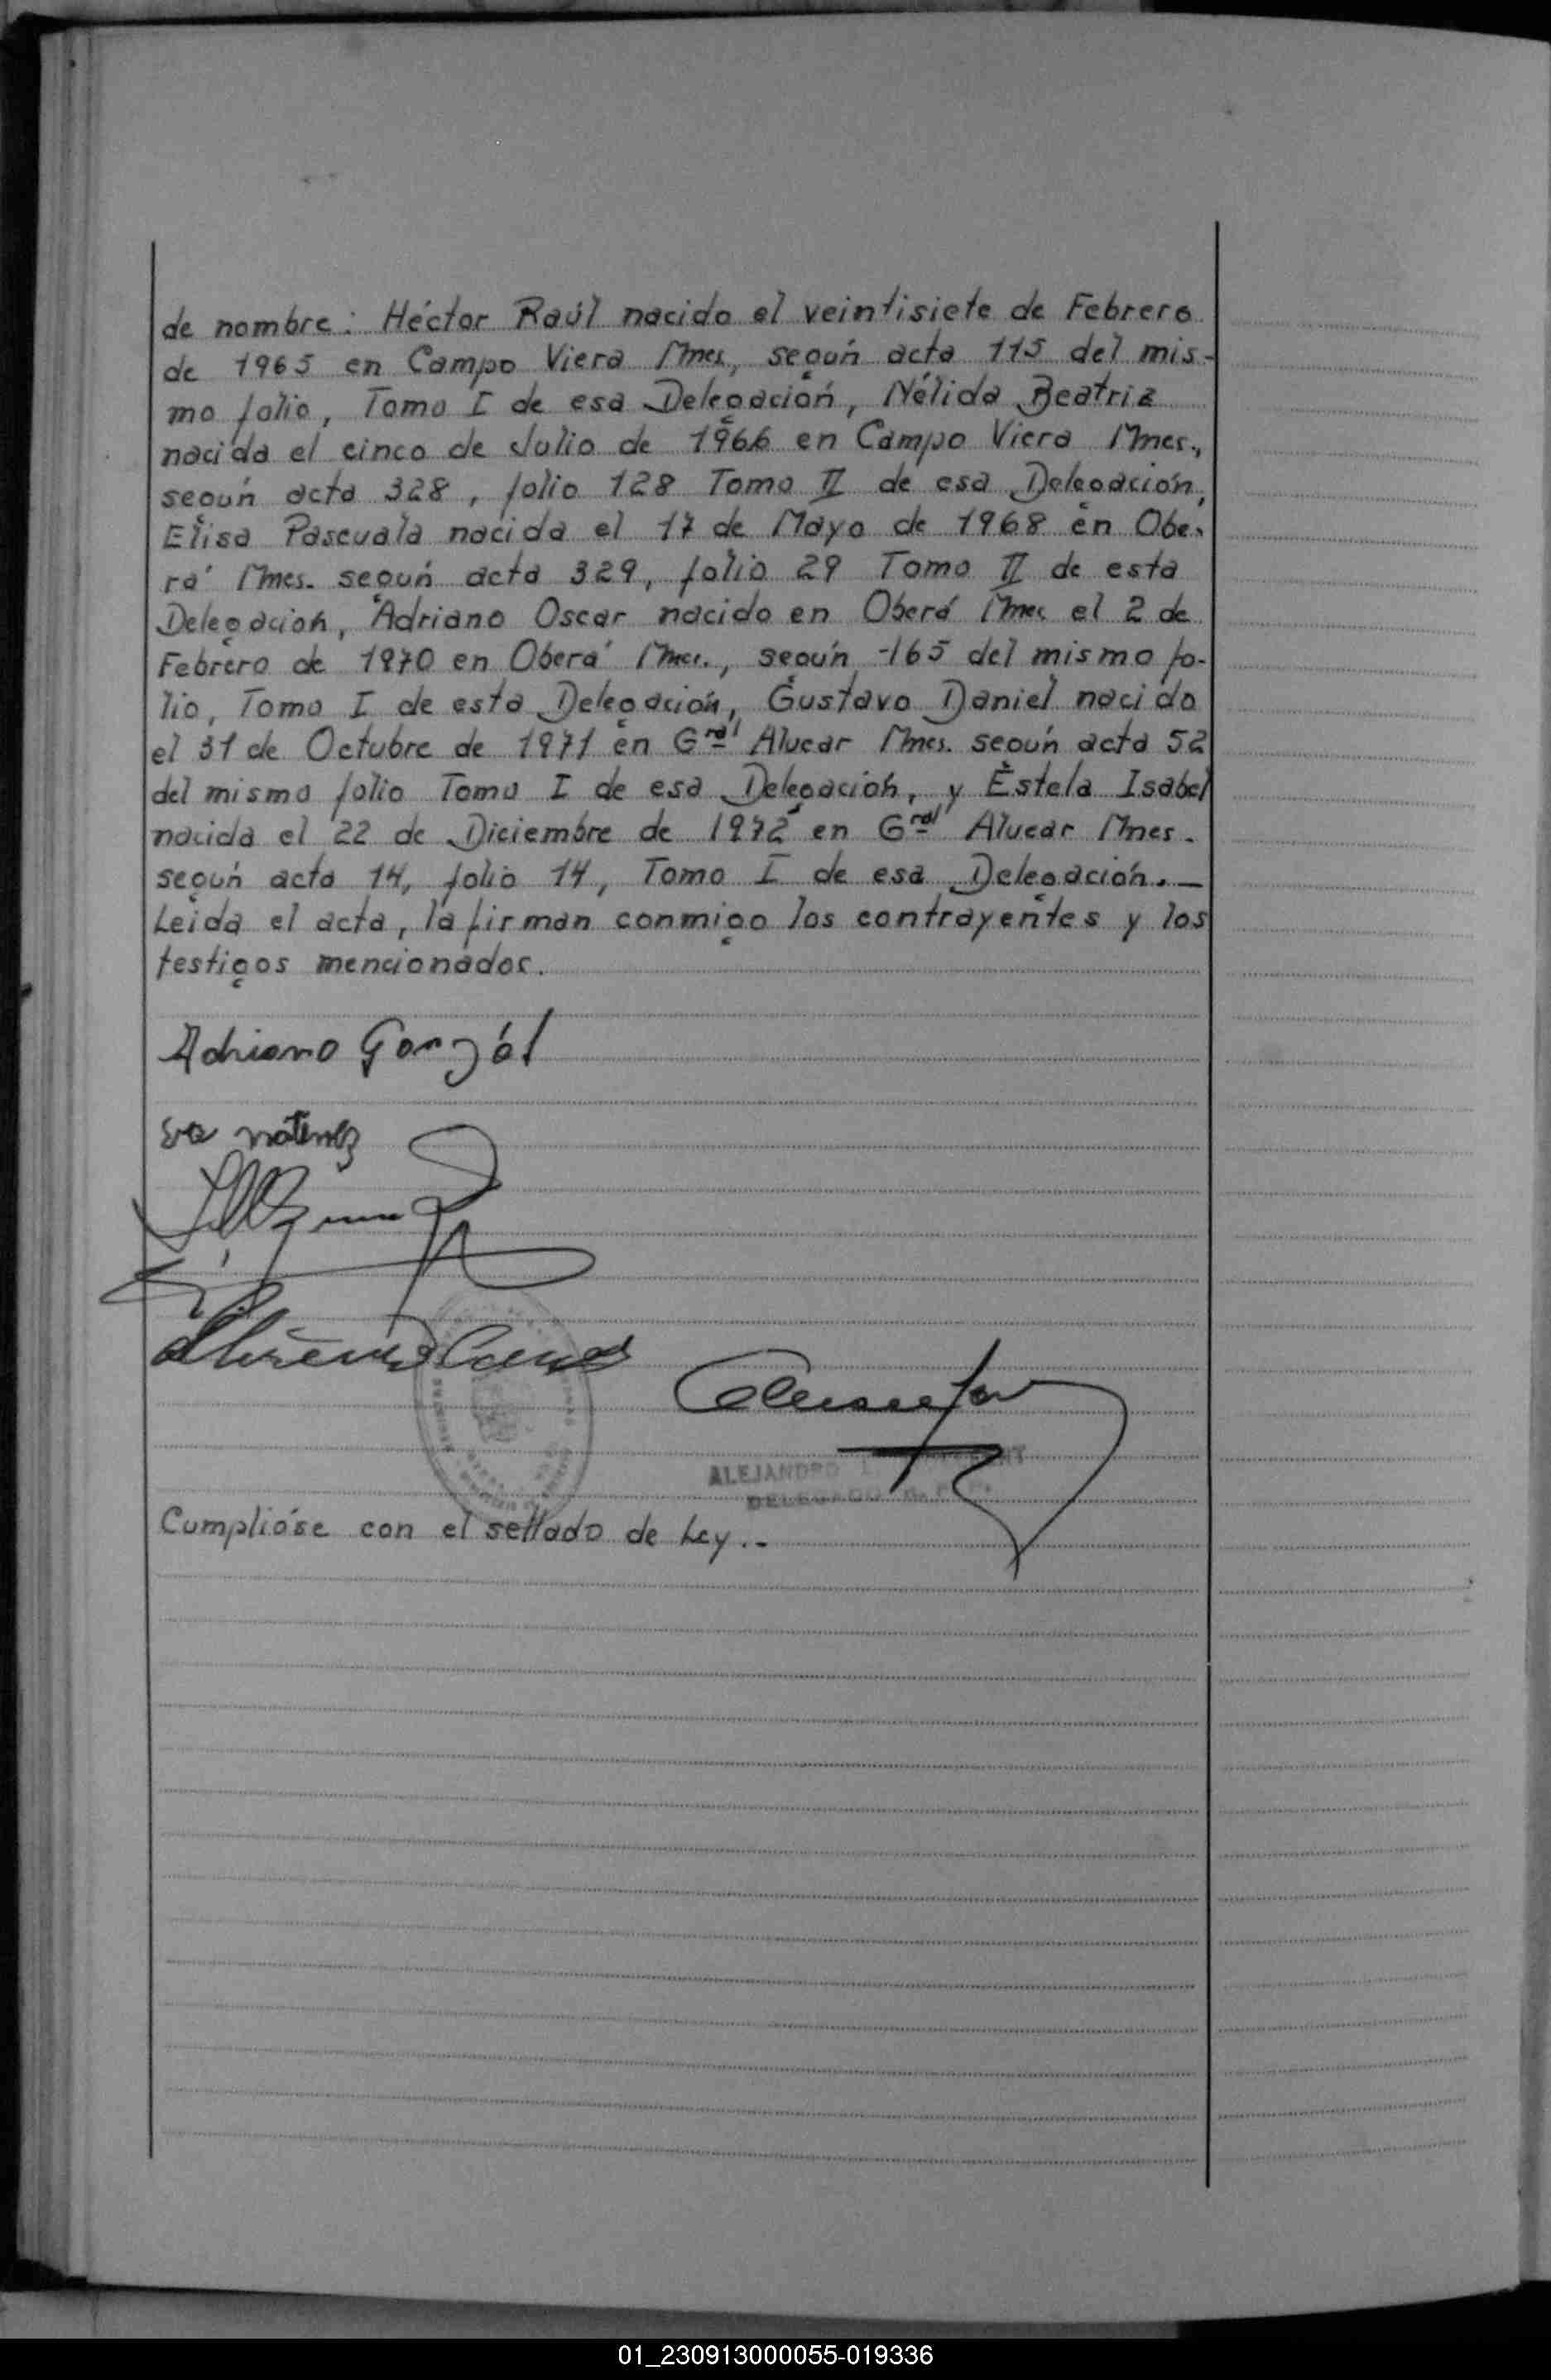 de nombre: Héctor Raúl nacido el veintisiete de Febrero
de 1965 en Campo Viera Mnes, según acta 115 del mis-
mo folio, Tomo I de esa Delegación, Nélida Beatriz
nacida el cinco de Julio de 1966 en Campo Viera Mnes.,
según acta 328, folio 128 Tomo II de esa Delegación,
Elisa Pascuala nacida el 17 de Mayo de 1968 en Obe-
rá Mnes. según acta 329, folio 29 Tomo II de esta
Delegacion, Adriano Oscar nacido en Oberá Mnes el 2 de
Febrero de 1970 en Oberá Mnes., según -165 del mismo fo-
lio, Tomo I de esta Delegación, Gustavo Daniel nacido
el 31 de Octubre de 1971 en Gral Alvear Mnes. según acta 52
del mismo folio Tomo I de esa Delegación, y Estela Isabel
nacida el 22 de Diciembre de 1972 en Gral Alvear Mnes.
según acta 14, folio 14, Tomo I de esa Delegación.—
Leida el acta, la firman conmigo los contrayentes y los
testigos mencionados.
Adriano
ALEJANDRO
DELEGADO
Cumplióse con el sellado de Ley.-
01_230913000055-019336